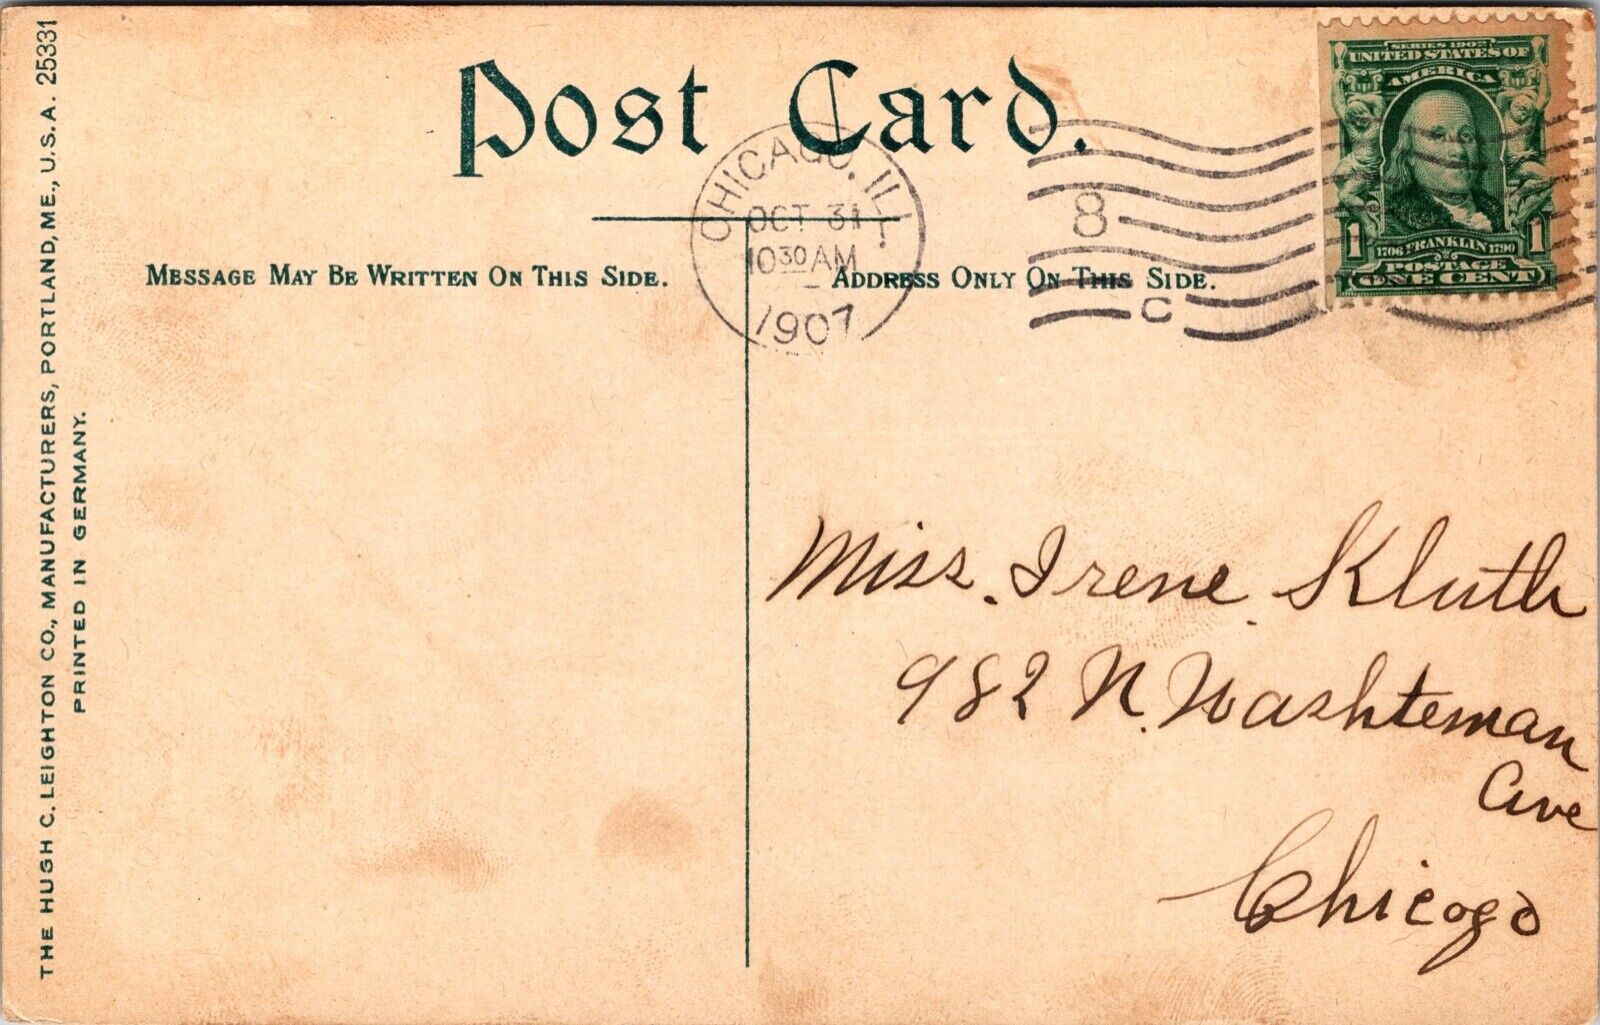 Post Card.
SERIES 1902
UNITED STATES OF
AMERICA
1706 FRANKLIN 1790
1 1
POSTAGE
ONE CENT
CHICAGO, ILL.
OCT 31
10 30 AM
1907
8
C
MESSAGE MAY BE WRITTEN ON THIS SIDE.
ADDRESS ONLY ON THIS SIDE.
THE HUGH C. LEIGHTON CO., MANUFACTURERS, PORTLAND, ME., U.S.A. 25331
PRINTED IN GERMANY.
Miss. Irene Kluth
982 N. Washteman
Ave
Chicago